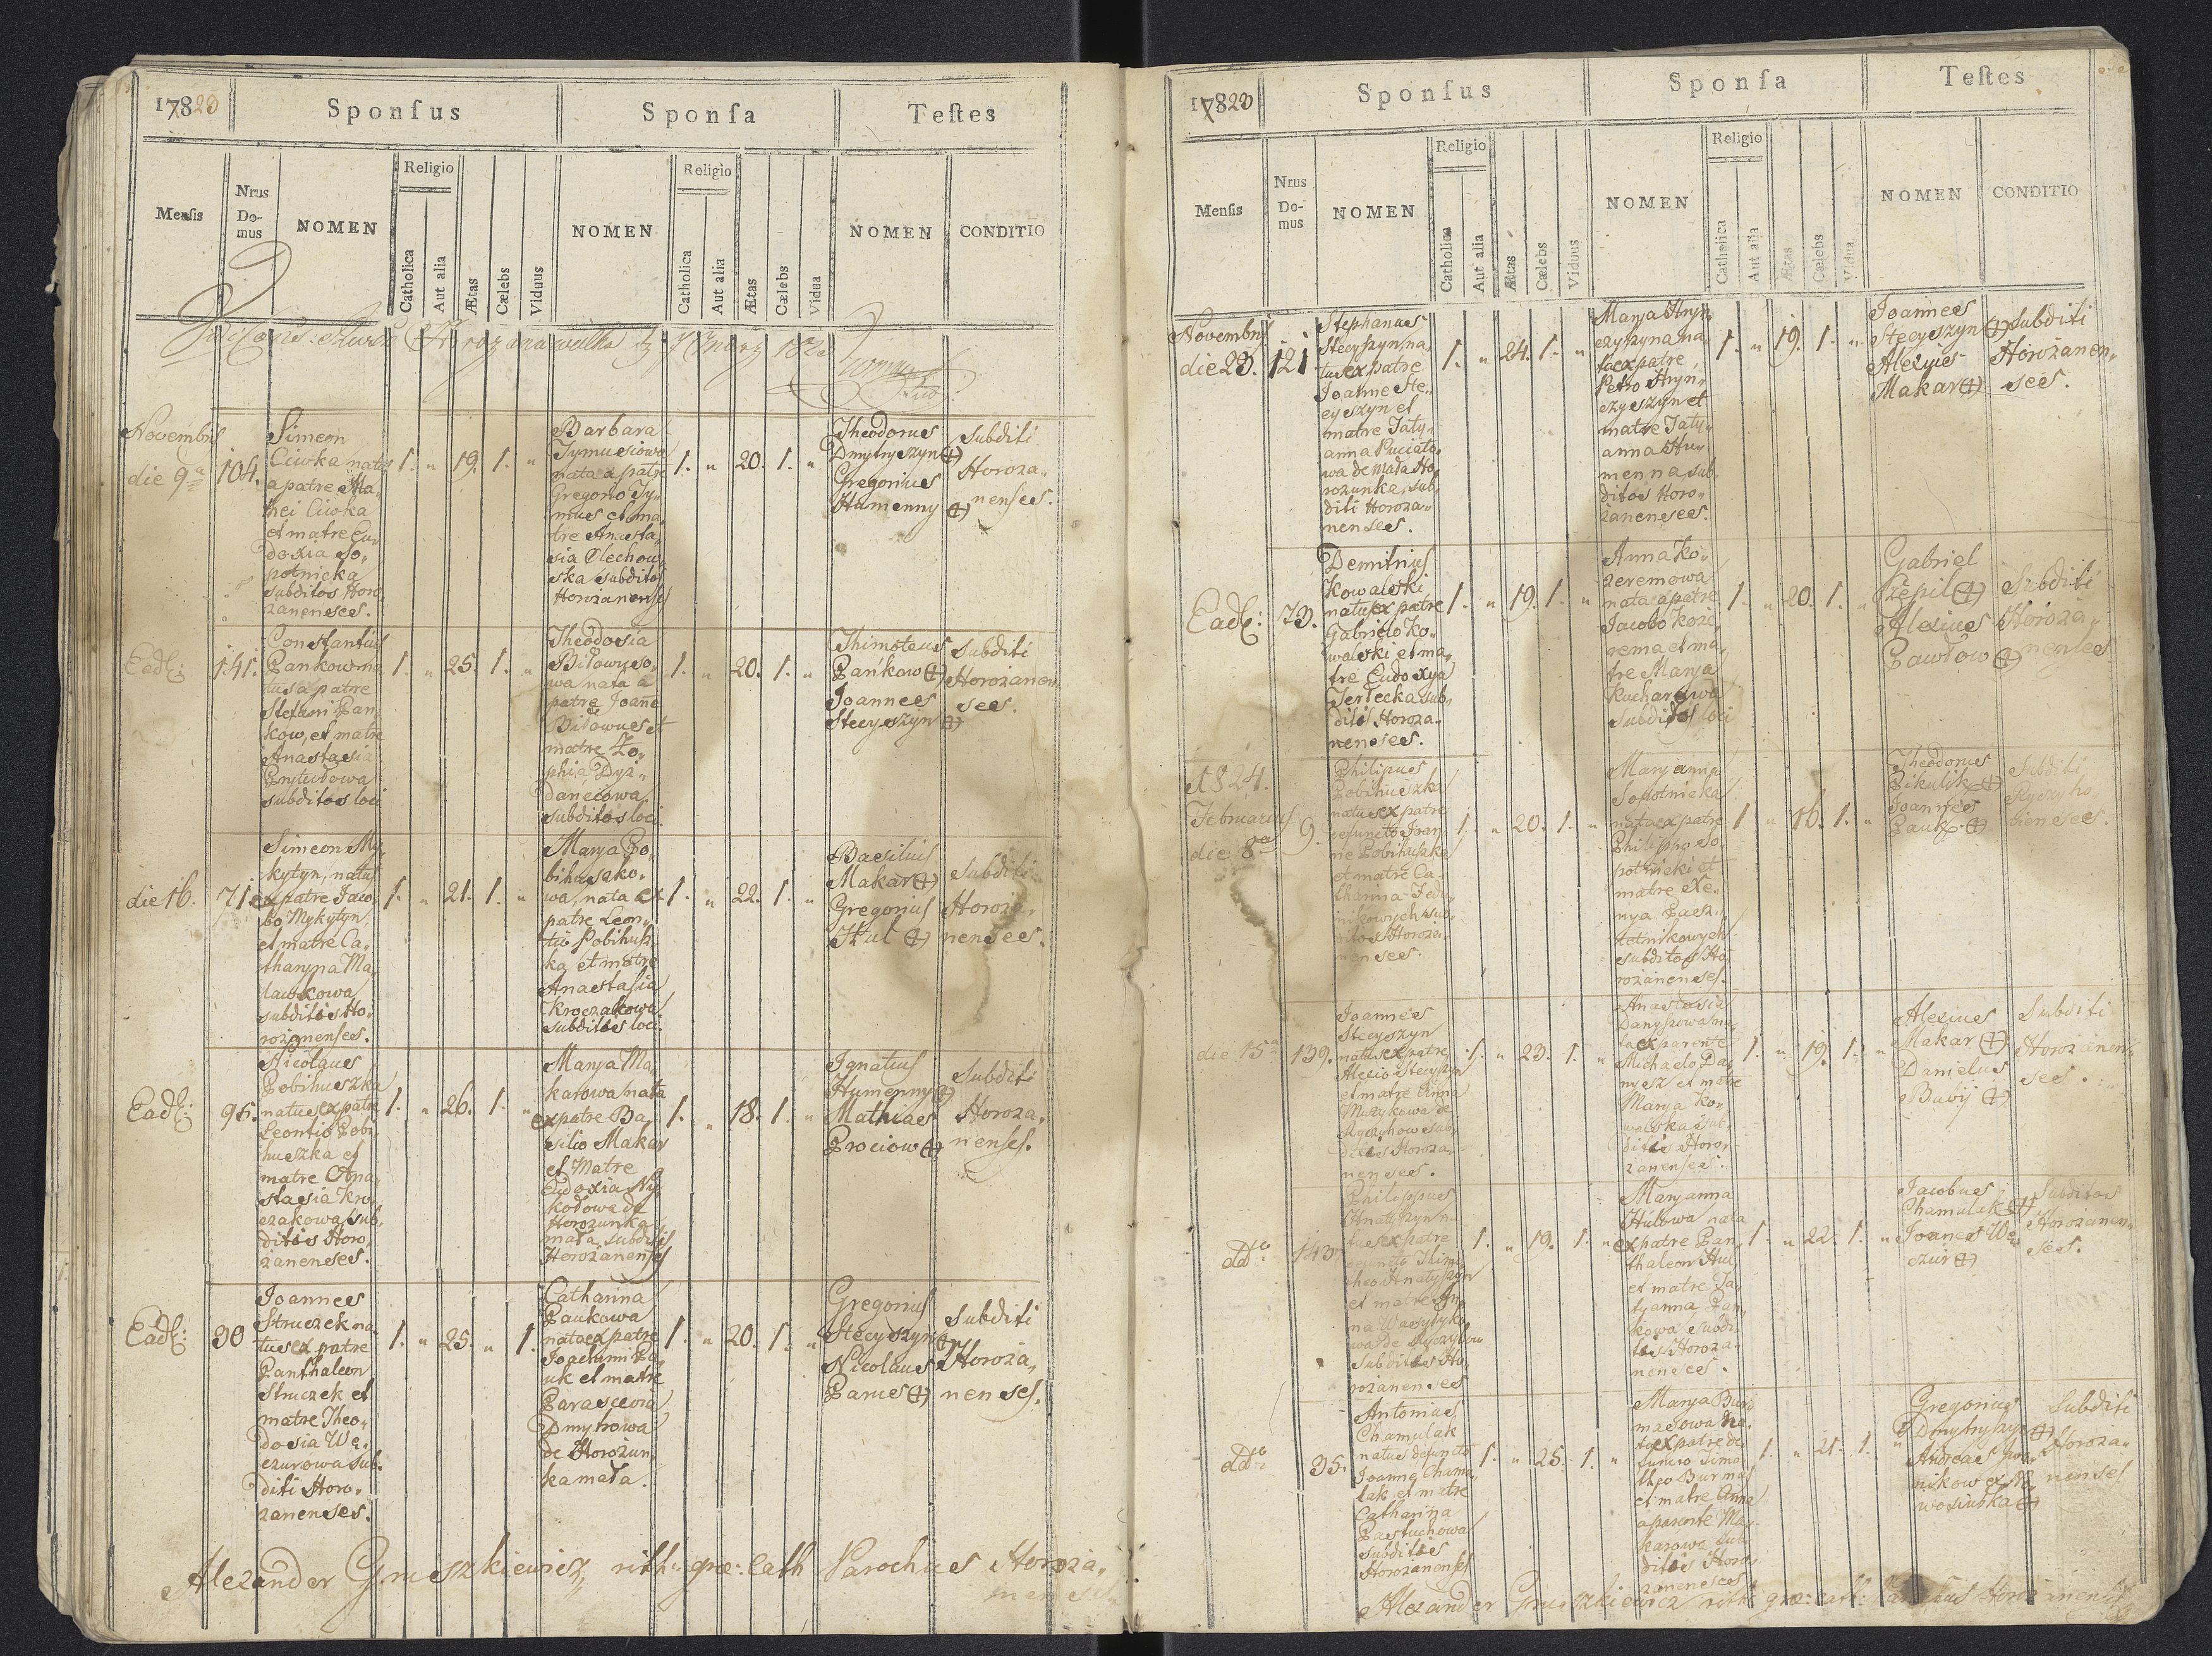 17823
Sponſus
Sponſa
Teſtes
Menſis
Nrus
Do-
mus
NOMEN
Religio
Catholica
Aut alia
Ætas
Cælebs
Viduus
NOMEN
Religio
Catholica
Aut alia
Ætas
Cælebs
Vidua
NOMEN
CONDITIO
Novembris
die 9a
104.
Simeon
Ciwka natus
a patre Ma„
thei Ciwka
et matre Eu„
doxia So„
potnicka
subditos Horo„
zanenses.
1. „ 19. 1. „
Barbara
Tymusiowa
nata a patre
Gregorio Ty„
mus et ma„
tre Anasta„
sia Olechow„
ska subditos
Horożanenses
1. „ 20. 1. „
Theodorus
Dmytryszyn (+)
Gregorius
Humenny (+)
Subditi
Horoża„
nenses.
Ead:
141.
Constantius
Pankow na„
tus a patre
Stefani Pan„
kow, et matre
Anastasia
subditos loci
1. „ 25. 1. „
Theodosia
nata a
patre Joane
et
matre Zo„
phia Dyz„
danecowa
subditos loci.
1. „ 20. 1. „
Thimoteus
Pańkow (+)
Joannes
Stecyszyn (+)
Subditi
Horożanen„
ses.
die 16.
71
Simeon My„
kytyn, natus
ex patre Jaco„
bo Mykytyn,
et matre Ca„
tharyna Ma„
subditos Ho„
rożanenses.
1. „ 21. 1. „
Marya Po„
bihuszko„
wa, nata ex
patre Leon„
tio Pobihusz„
ka et matre
Anastasia
Kroczakowa
subditos loci.
1. „ 22. 1. „
Basilius
Makar (+)
Gregorius
Hul (+)
Subditi
Horoża„
nenses.
Ead:
96.
Nicolaus
Pobihuszka
natus ex patre
Leontio Pobi„
huszka et
matre Ana„
stasia Kro„
czakowa sub„
ditos Horo„
żanenses.
1. „ 26. 1. „
Marya Ma„
karowa nata
ex patre Ba„
silio Makar
et Matre
Eudoxia Ny„
kołowa de
Horożanka
mała subditis
Horożanenses
1. „ 18. 1. „
Ignatius
Humenny (+)
Mathias
Prociow (+)
Subditi
Horoża„
nenses.
Ead:
30
Joannes
Struczek na„
tus ex patre
Panthaleon
Struczek et
matre Theo„
dosia We„
czurowa sub„
diti Horo„
żanenses.
1. „ 25. „ 1.
Catharina
Paukowa
nata ex patre
Joachimi Pa„
uk et matre
Parascevia
Dmytrowa
de Horożan„
ka mała.
1. „ 20. 1. „
Gregorius
Stecyszyn (+)
Nicolaus
Panus (+)
Subditi
Horoża„
nenses.
Alexander Gruszkiewicz rith: græ: cath Parochus Horoża„
nensis
17823
Sponſus
Sponſa
Teſtes
Menſis
Nrus
Do-
mus
NOMEN
Religio
Catholica
Aut alia
Ætas
Cælebs
Viduus
NOMEN
Religio
Catholica
Aut alia
Ætas
Cælebs
Vidua
NOMEN
CONDITIO
Novembris
die 23.
121
Stephanus
Stecyszyn, na„
tus ex patre
Joanne Ste„
cyszyn et
matre Taty„
anna Puciato„
wa de mała Ho„
rożanka, sub„
diti Horoża„
nenses.
1. „ 24. 1. „
Marya Hryn„
czyszyna na„
ta ex patre
Petro Hryn„
czyszyn et
matre Taty„
anna Hu„
menna, sub„
ditos Horo„
żanenses.
1. „ 19. 1. „
Joannes
Stecyszyn (+)
Alexius
Makar (+)
Subditi
Horożanen„
ses.
Ead:
73.
Demitrius
Kowalski
natus ex patre
Gabrielo Ko„
walski et ma„
tre Eudoxya
Terlecka sub„
ditos Horoża„
nenses.
1. „ 19. 1. „
Anna Ko„
zeremowa
nata a patre
Jacobo Koże„
rema et ma„
tre Marya
Kucharowa
subditos loci
1. „ 20. 1. „
Gabriel
Szepil (+)
Alexius
Pawłow (+)
Subditi
Horoża„
nenses
1824.
Februarius
die 8va
9.
Philipus
Pobihuszka
natus ex patre
defuncto Joan„
ne Pobihuszka
et matre Ca„
tharina Fed„
subditos Horoża„
nenses.
1. „ 20. 1. „
Maryanna
Sopotnicka
nata ex patre
Philippo So„
potnicki et
matre Xe„
nya
subditos Ho„
rożanenses.
1 „ 16. 1. „
Theodorus
Pikulik (+)
Joannes
Pauk (+)
Subditi
Ryczyho„
bienses.
die 15a
139.
Joannes
Stecyszyn
natus ex patre
Alecio Stecyszyn
et matre Anna
Muzykowa de
Ryczyhow sub„
ditos Horoża„
nenses.
1. „ 23. 1. „
Anastasia
Danyszowa na„
ta ex parente
Michaelo Da„
nysz et matre
Marya Ko„
walska sub„
ditis Horo„
żanenses.
1. „ 19. 1. „
Alexius
Makar (+)
Danielus
Buwij (+)
Subditi
Horożanen„
ses.
ddto
143.
Philippus
Hnatyszyn n„
tus ex patre
defuncto Thimo„
theo Hnatyszyn
et matre An„
na
wa de Ryczyhow
subditis Ho„
rożanenses
1. „ 19. 1. „
Maryanna
Hulowa nata
ex patre Pan„
thaleon Hul
et matre Ta„
tyanna Pan„
kowa subdi„
tis Horoża„
nenses.
1. „ 22. 1. „
Jacobus
Chamulak (+)
Joanes We„
czur (+)
Subditos
Horożanen„
ses.
ddto
35.
Antonius
Chamulak
natus defuncto
Joanne Chamu„
lak et matre
Catharina
Pastuchowa
subditis
Horożanenses
1. „ 25. 1. „
Marya Bur„
masowa na„
ta ex patre de„
functo Timo„
theo Burmas
et matre Anna
a parente Ma„
karowa sub„
ditis Horo„
żanenses
1. „ 21. 1. „
Gregorius
Dmytryszyn (+)
Andreas
Subditi
Horoża„
nenses
Alexander Gruszkiewicz rith græ: cath: Parochus Horożanensis